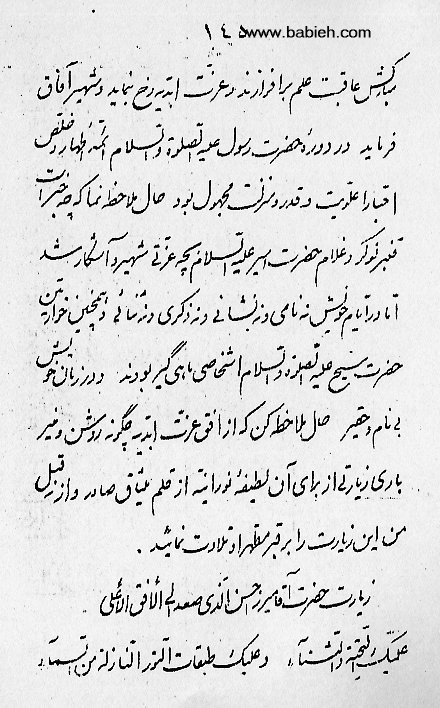 ١٤٥
www.babieh.com
مبارکش عاقبت علم برافرازند و عزّت ابدیّه رخ نماید و شهیر آفاق
فرماید در دورهٔ حضرت رسول علیه الصّلوة و السّلام ائمّهٔ اطهار و خلّص
اقبار علویّت و قدر و منزلت مجهول بود حال ملاحظه نما که چه خبر است
قنبر نوکر و غلام حضرت امیر علیه السّلام بچه عزّتی شهیر و آشکار شد
امّا در ایّام خویش نه نامی و نه نشانی و نه ذکری و نه ثنائی و همچنین حواریّین
حضرت مسیح علیه الصّلوة و السّلام اشخاصی ماهی گیر بودند و در زمان خویش
بی نام و حقیر حال ملاحظه کن که از افق عزّت ابدیّه چگونه روشن و منیر
باری زیارتی از برای آن لطیفهٔ نورانیّه از قلم میثاق صادر و از قبل
من این زیارت را بر قبر مطهّر او تلاوت نمائید .
زیارت حضرت آقا میرزا حسن الّذی صعد الی الأفق الأعلی
علیک التّحیّة و الثّنآء و علیک طبقات النّور النّازلة من السّمآء